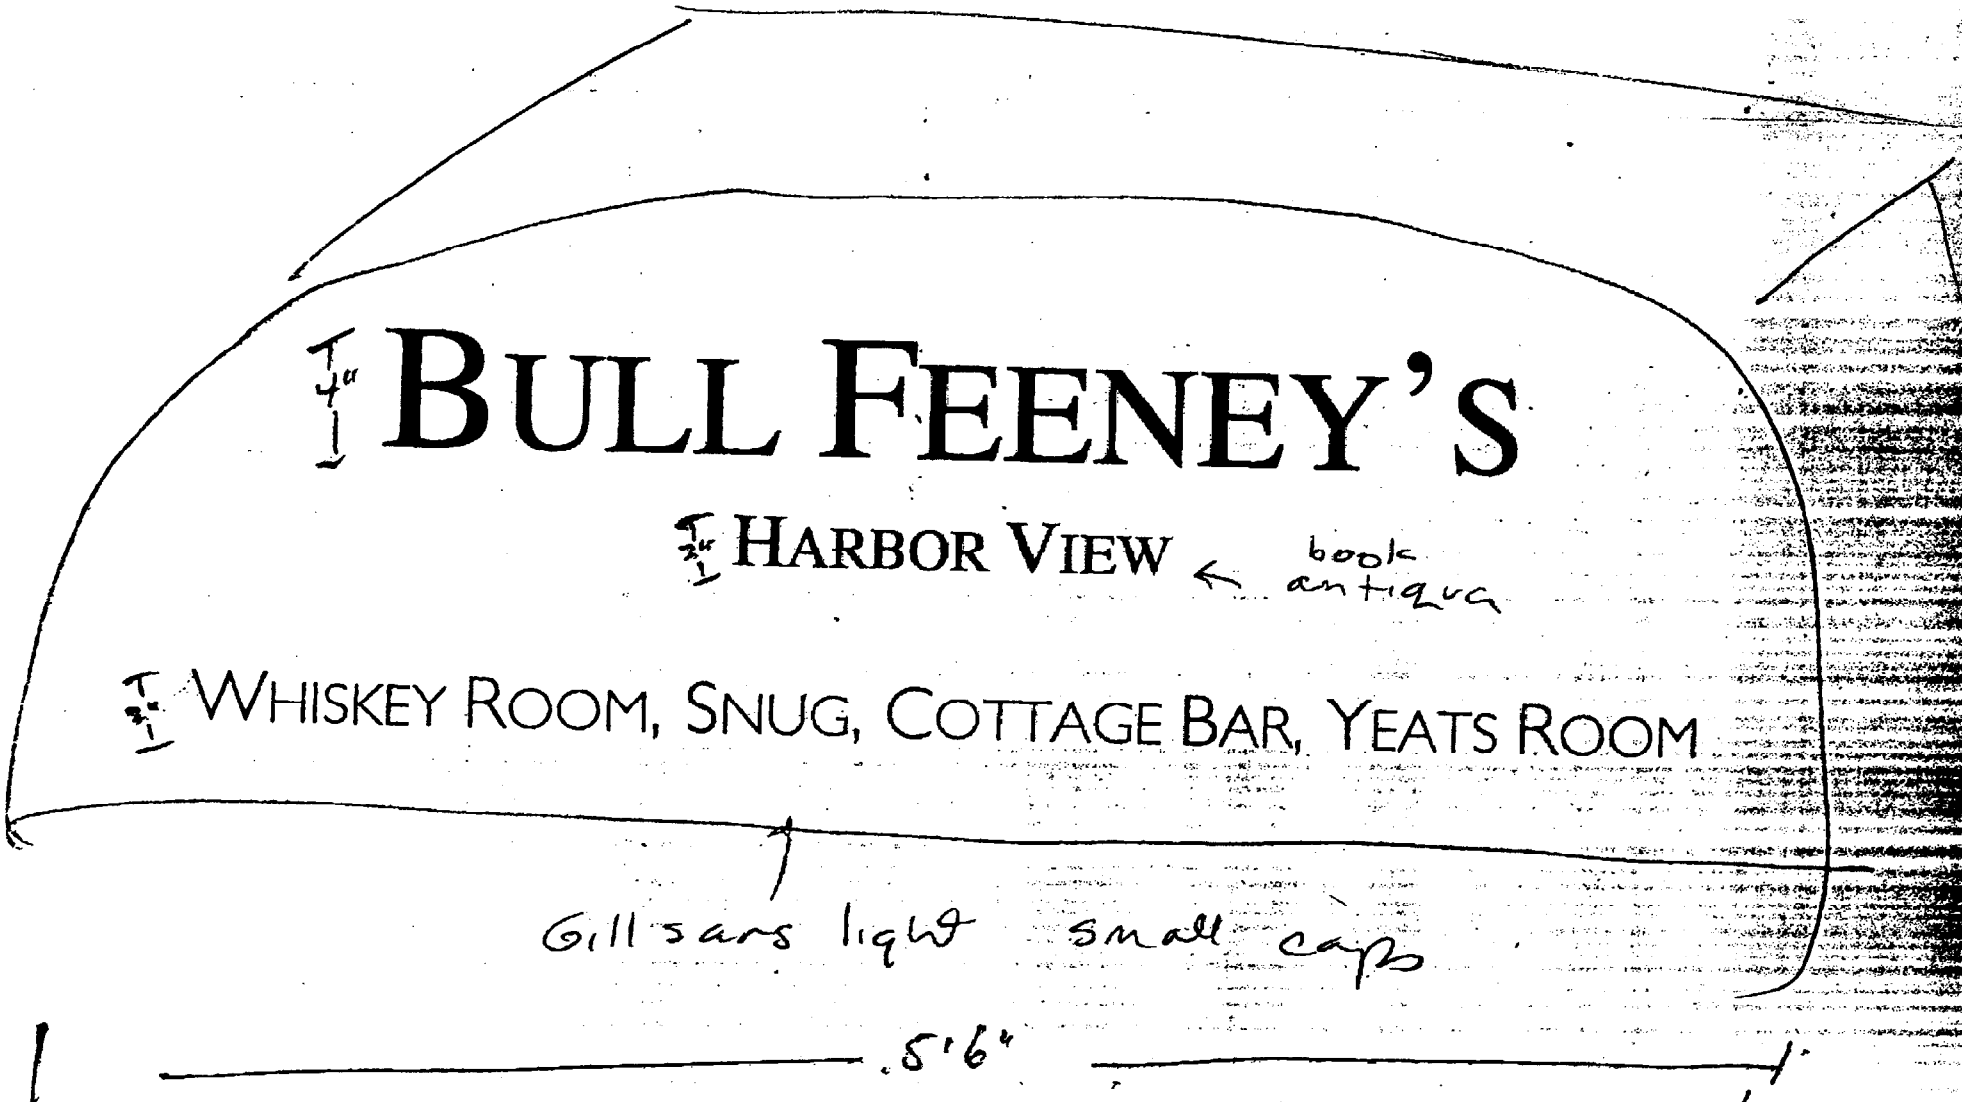 4" BULL FEENEY'S
2" HARBOR VIEW ← book antiqua
WHISKEY ROOM, SNUG, COTTAGE BAR, YEATS ROOM
Gill sans light small caps
5'6"